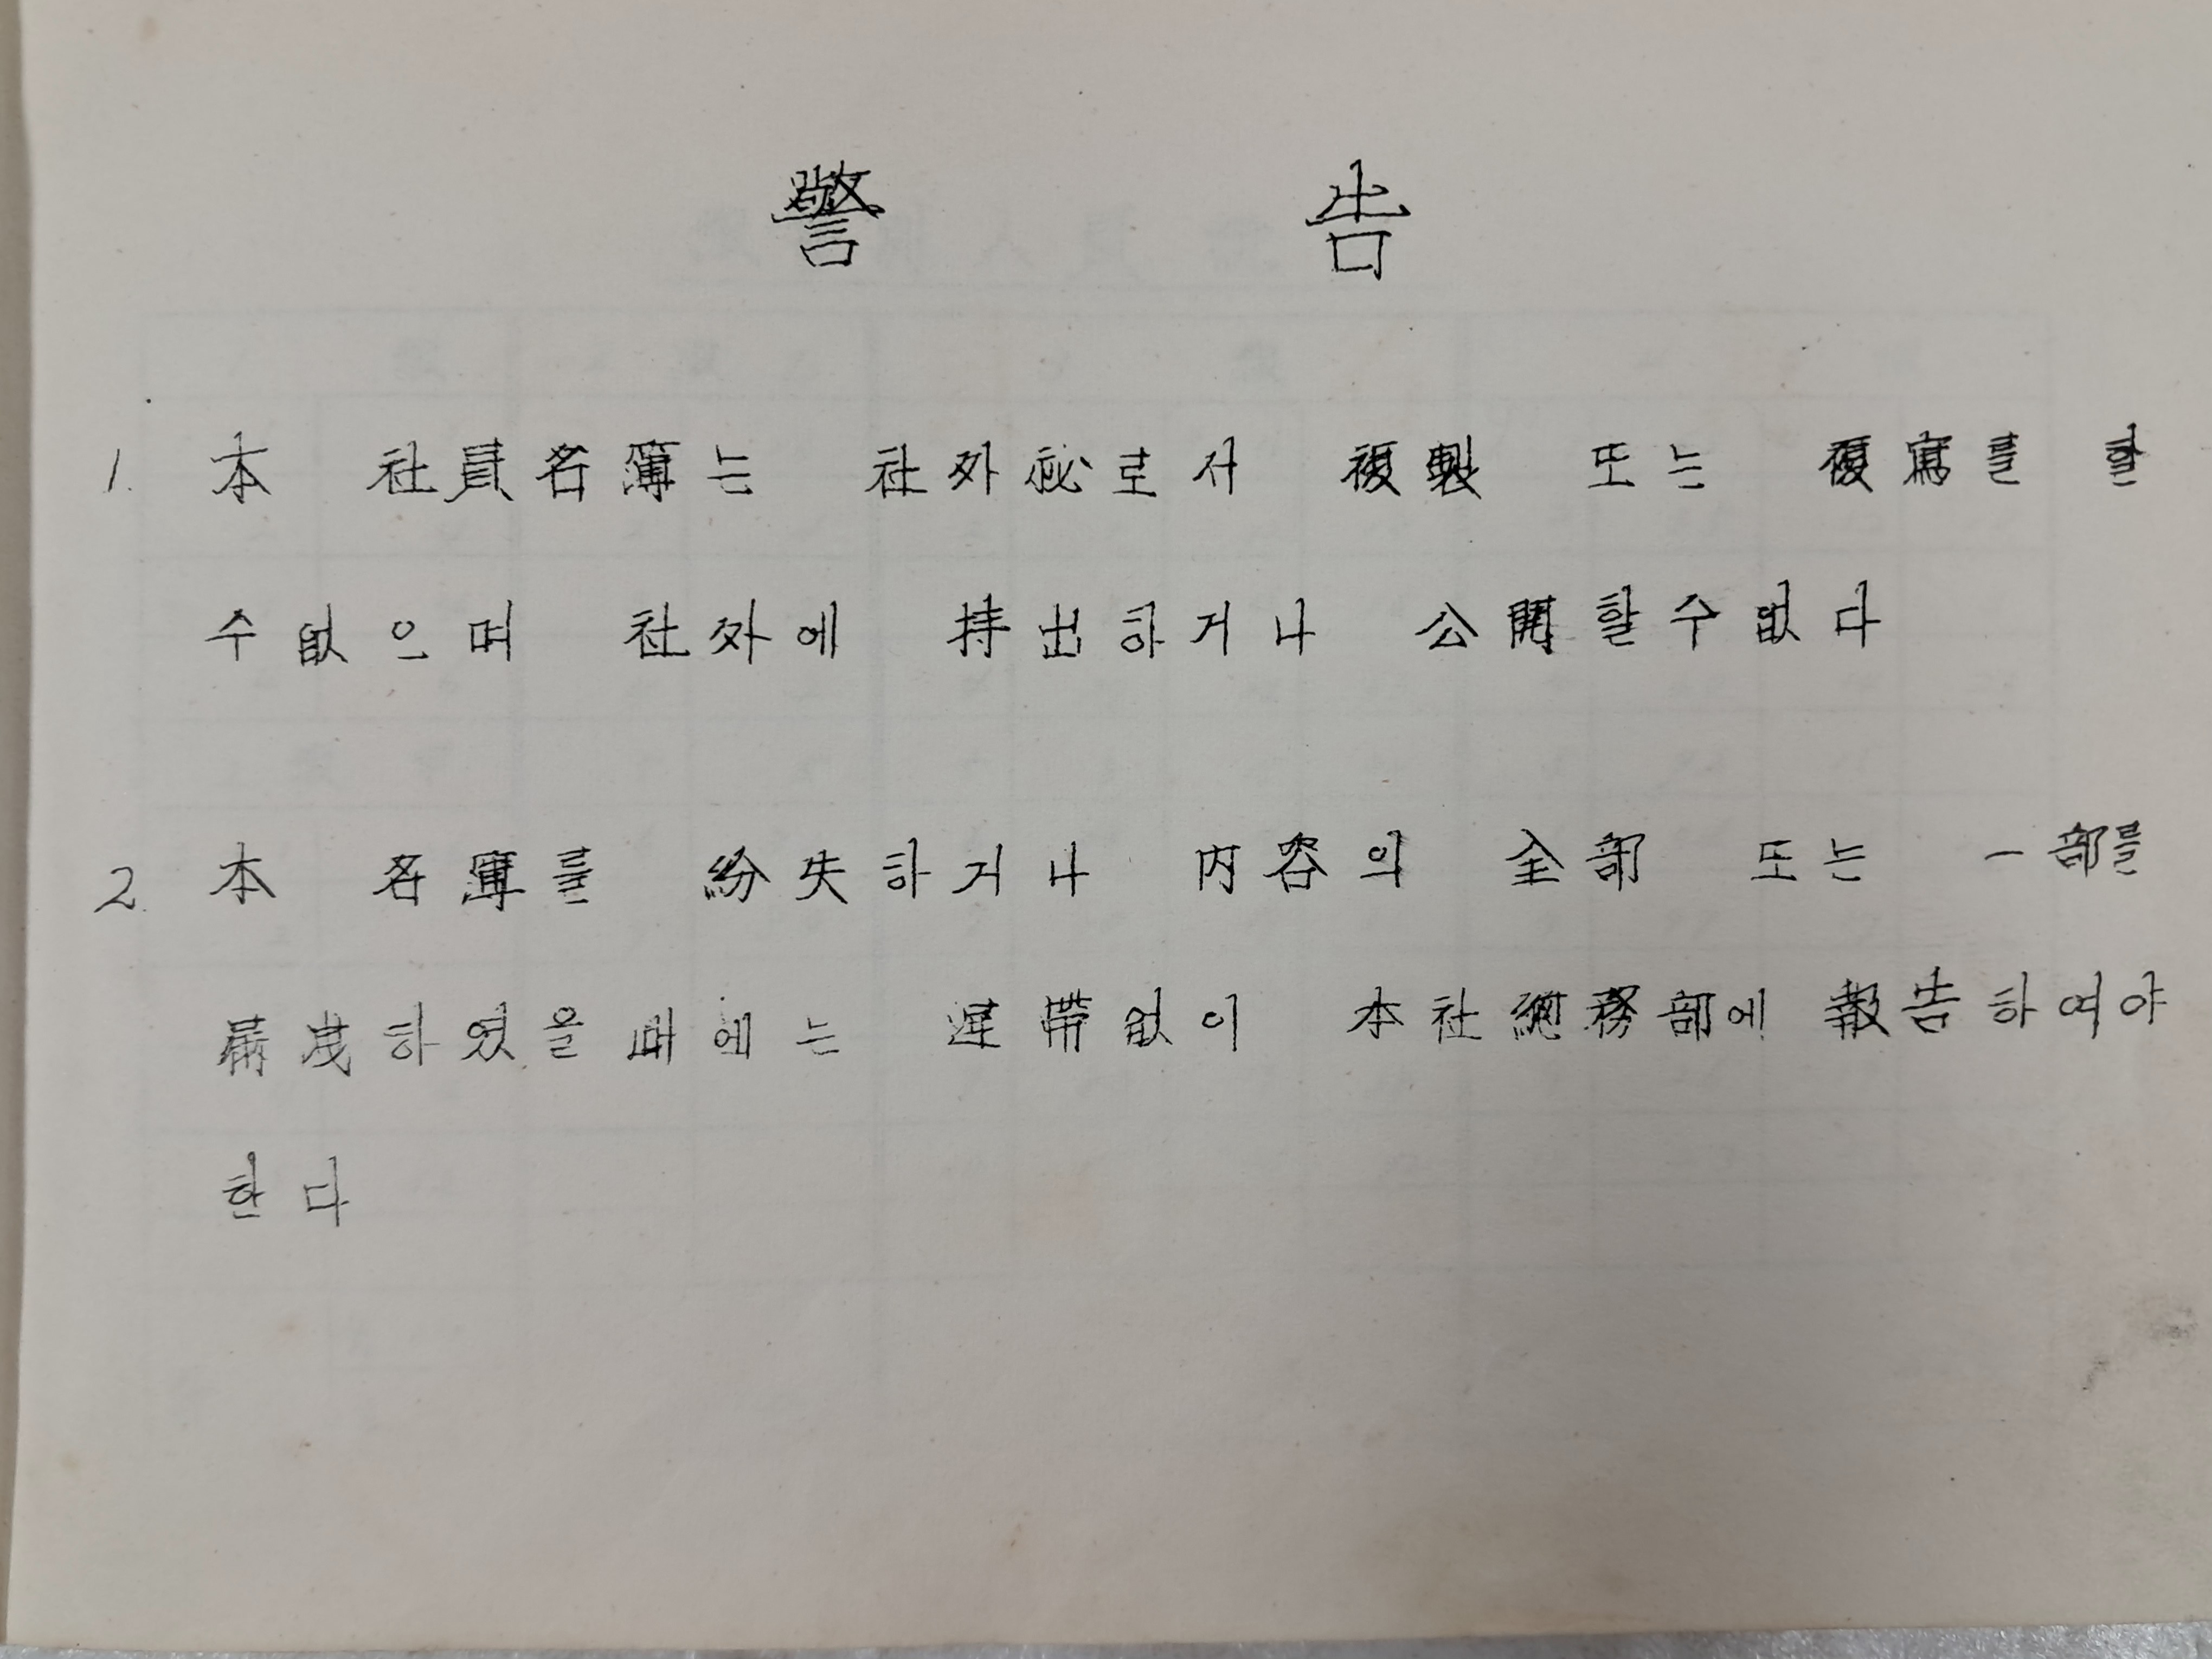 警 告
1. 本 社員名簿는 社外秘로서 複製 또는 複寫를 할
수없으며 社外에 持出하거나 公開할수없다
2. 本 名簿를 紛失하거나 內容의 全部 또는 一部를
漏洩하였을때에는 遲滯없이 本社總務部에 報告하여야
한다